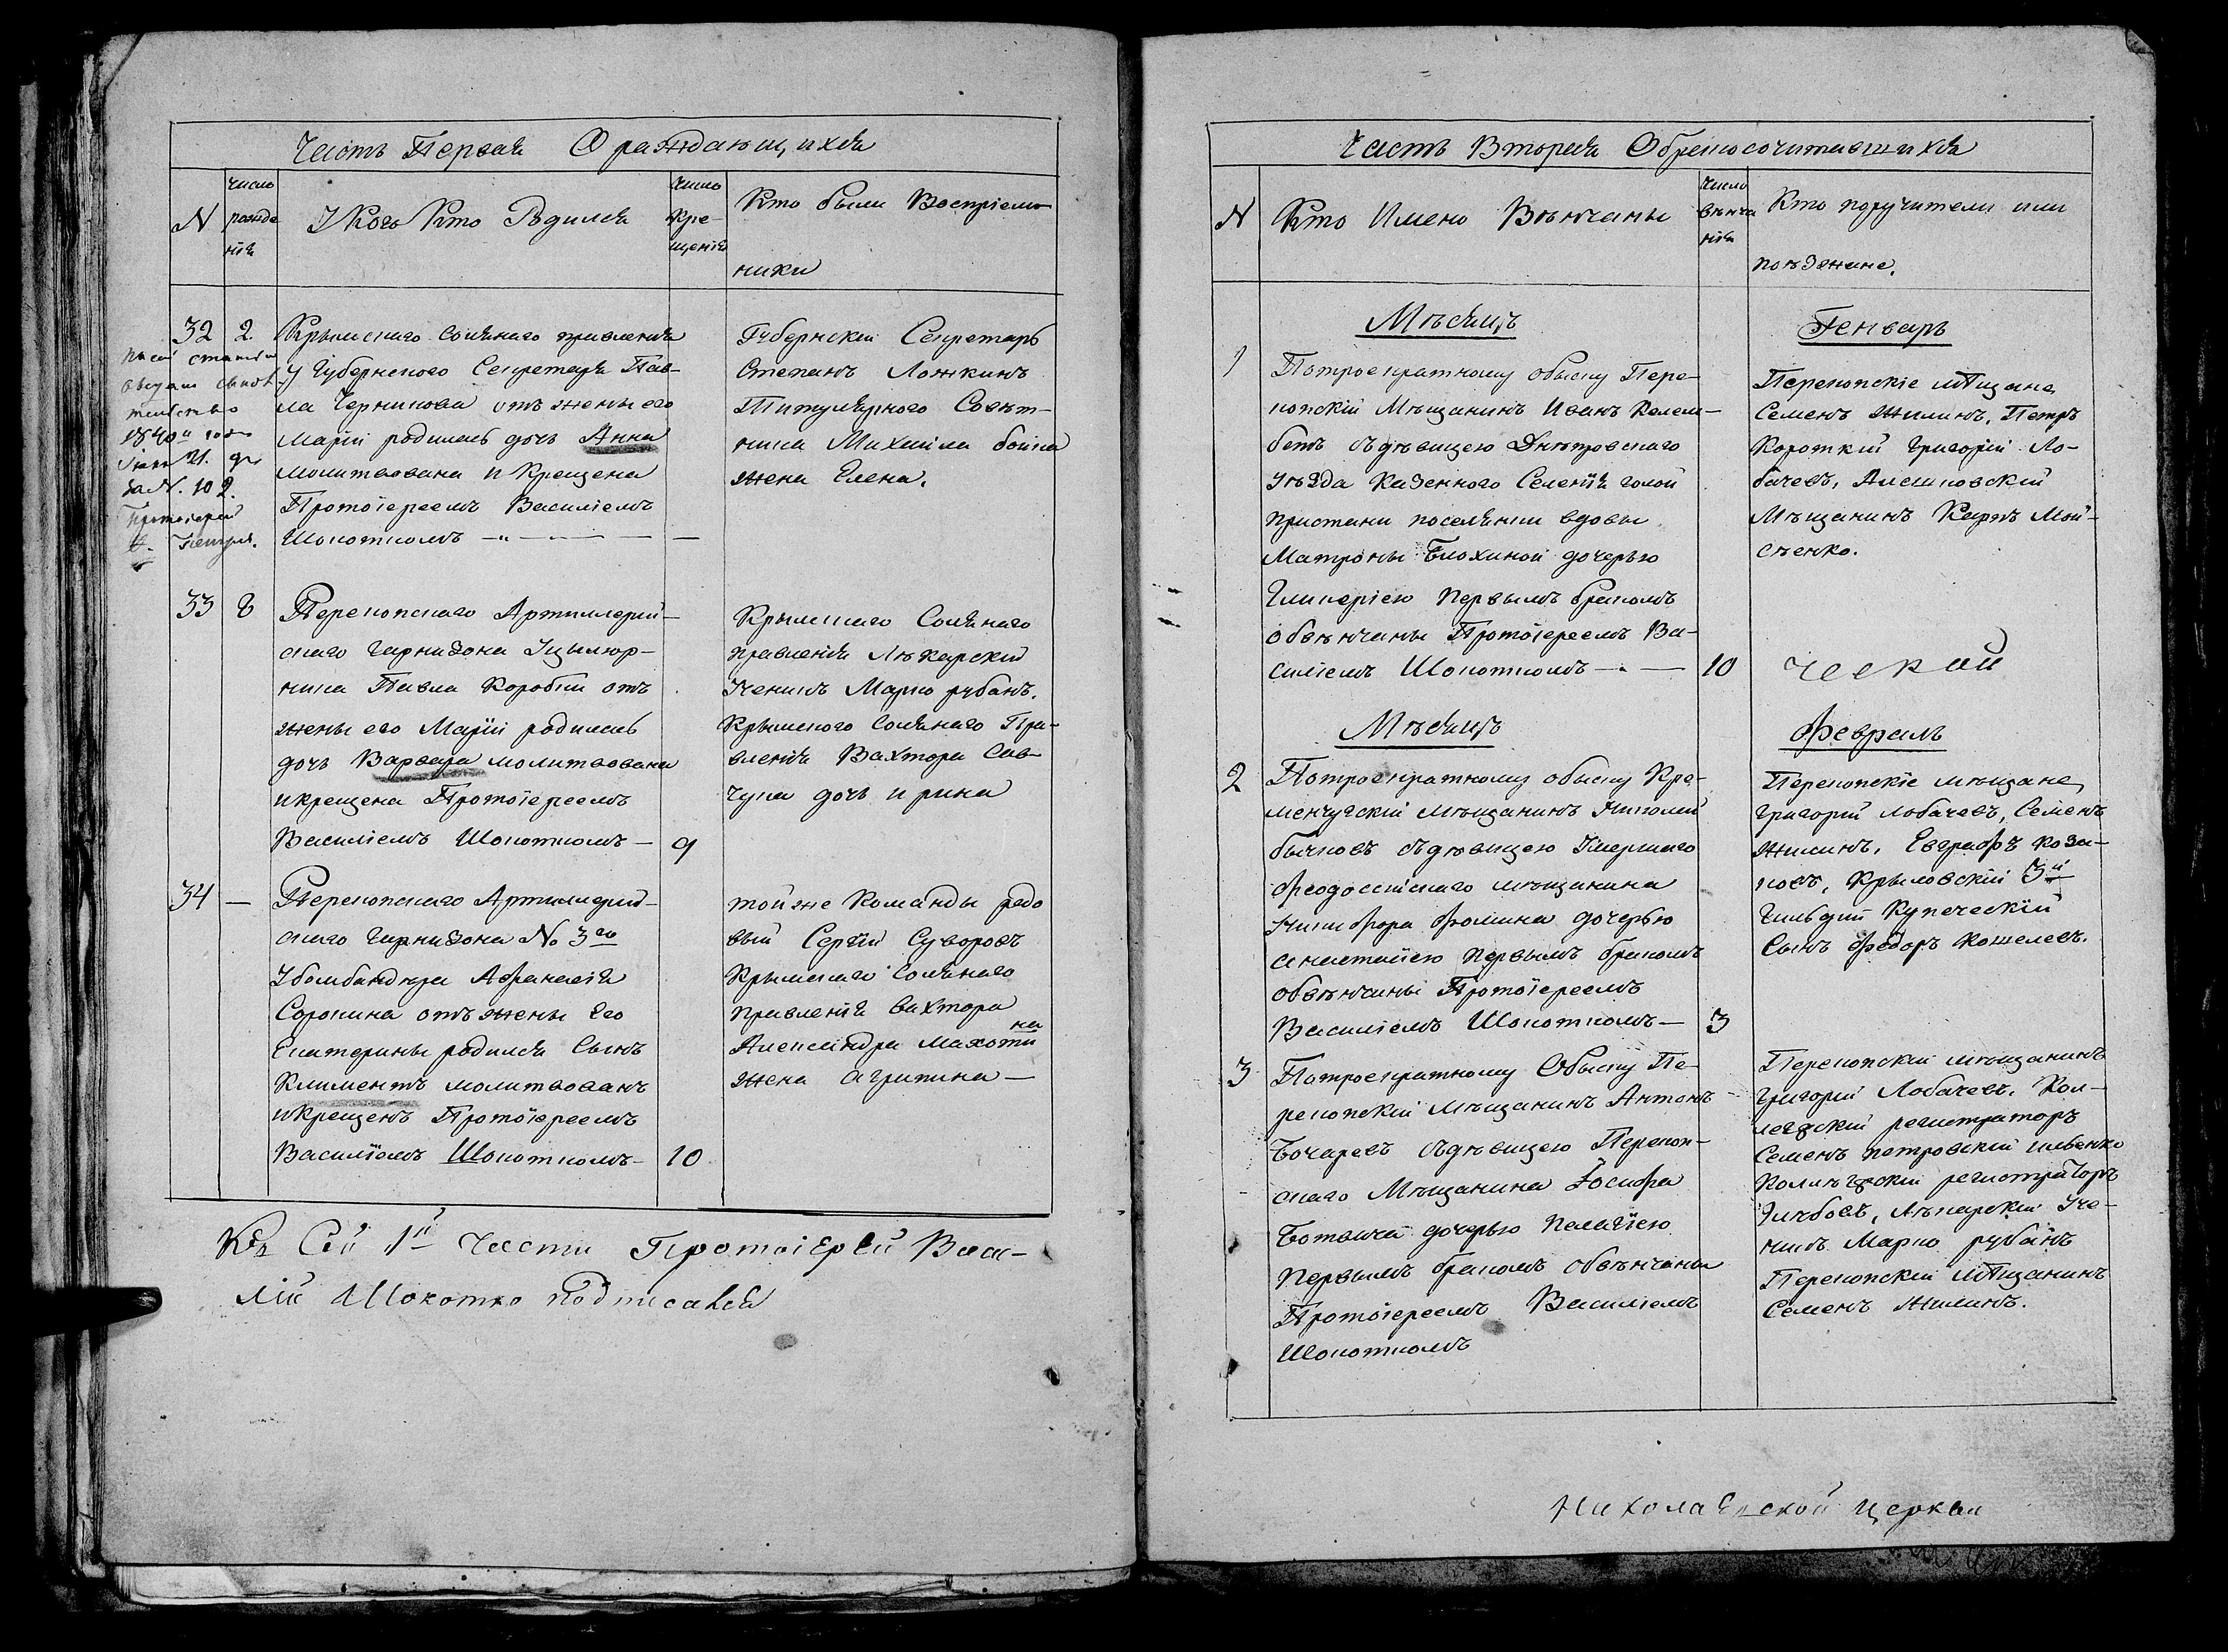 Часть Первая О раждающихся
N
число
рожде
нія
У Кого Кто Родился
число
кре-
щенія
Кто были Воспріем-
ники
32
2.
Крымскаго Солянаго правленія
У Губернскаго Секретаря Пав-
ла Черникова отъ жены его
Маріи родилась дочь Анна
молитвована и Крещена
Протоіереемъ Василіемъ
Шокоткомъ
Губернскій Секретарь
Степанъ Ложкинъ
Титулярнаго Совѣт-
ника Михаила бойка
жена Елена.
по сей статьи
выдано свидѣ
тельство
1840 года
21. дня
За N. 102.
Протоіерей
33
8
Перекопскаго Артиллерій-
скаго Гарнизона Уцылюр-
ника Павла Коробки отъ
жены его Маріи родилась
дочь Варвара молитвована
и крещена Протоіереемъ
Василіемъ Шокоткомъ —
9
Крымскаго Солянаго
правленія Лѣкарскій
Ученикъ Марко рубанъ.
Крымскаго Солянаго Пра-
вленія Вахтера Сав-
чука дочь ирина
34
—
Перекопскаго Артилерій-
скаго Гарнизона No 3го
У бомбандира Афанасія
Сорокина отъ жены Его
Екатерины родился Сынъ
Климентъ молитвованъ
и крещенъ Протоіереемъ
Василіемъ Шокоткомъ-
10
той же Команды рядо
вый Сергій Суворовъ
Крымскаго Солянаго
правленія вахтера
Александра Махотки
на
жена агрипина —
Къ Сей 1й Части Протоіерей Васи-
лій Шокотко подписался
Часть Вторая О бракосочитавшихся
N
Кто Имено Вѣнчаны
число
вѣнча
нія
Кто поручители или
поѣзжане.
Мѣсяцъ
Генварь
1
По троекратному обыску Пере-
копскій Мѣщанинъ Иванъ Келем-
бетъ съ дѣвицею Днѣпровскаго
уѣзда Казенного Селенія голой
пристани поселянки вдовы
Матроны Блохиной дочерью
Гликеріею первымъ бракомъ
обвѣнчаны Протоіереемъ Ва-
силіемъ Шокоткомъ —
10
Перекопскіе мѣщане
Семенъ Жилинъ, Петръ
Короткій Григорій Ло-
бачевъ, Алешковскій
Мѣщанинъ Карпъ Мой-
сѣенко.
ческой
Мѣсяцъ
Февраль
2
По троекратному обыску Кре-
менчугскій мѣщанинъ Николай
бычковъ съ дѣвицею Умершаго
Феодосійскаго мѣщанина
Никифора Фомина дочерью
анастасіею первымъ бракомъ
обвѣнчаны Протоіереемъ
Василіемъ Шокоткомъ —
3
Перекопскіе мѣщане
Григорій Лобачевъ, Семенъ
Жилинъ, Евграфъ коза-
ковъ, Крыловскій 3й
Гильдіи Купеческій
Сынъ Федоръ Кошелевъ.
3
По троекратному Обыску Пе-
рекопскій мѣщанинъ Антонъ
Бочаревъ съ дѣвицею Перекоп-
скаго Мѣщанина Іосифа
Ботвича дочерью Пелагіею
первымъ бракомъ обвѣнчаны
Протоіереемъ Василіемъ
Шокоткомъ
Перекопскій мѣщанинъ
Григорій Лобачевъ, Кол-
лежскій регистраторъ
Семенъ петровскій
Колежскій регистраторъ
Глѣбовъ, Лѣкарскій Уче-
никъ Марко рубанъ
Перекопскій мѣщанинъ
Семенъ Жилинъ.
Николаевской церкви